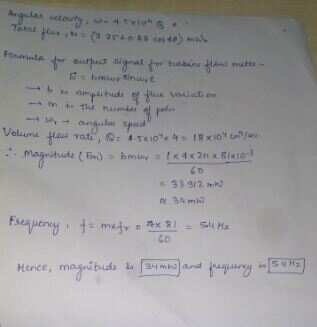 Angular velocity, ω = 4.5×10⁴ Q
Total flux, = (3.25+0.88 cos 4θ) mWb
Formula for output signal for turbine flow meter -
E = bmωr sin ωr t
→ b is amplitude of flux variation
→ m is the number of poles
→ ωr → angular speed
Volume flow rate, Q = 4.5×10⁴ × 4 = 18×10⁴ cm³/sec.
∴ Magnitude (Em) = bmωr = 1×4×2π×81×10⁻³
60
= 33.912 mW
≈ 34mW
Frequency, f = m×fr = 4×81 = 54 Hz
60
Hence, magnitude is 34mW and frequency is 54Hz